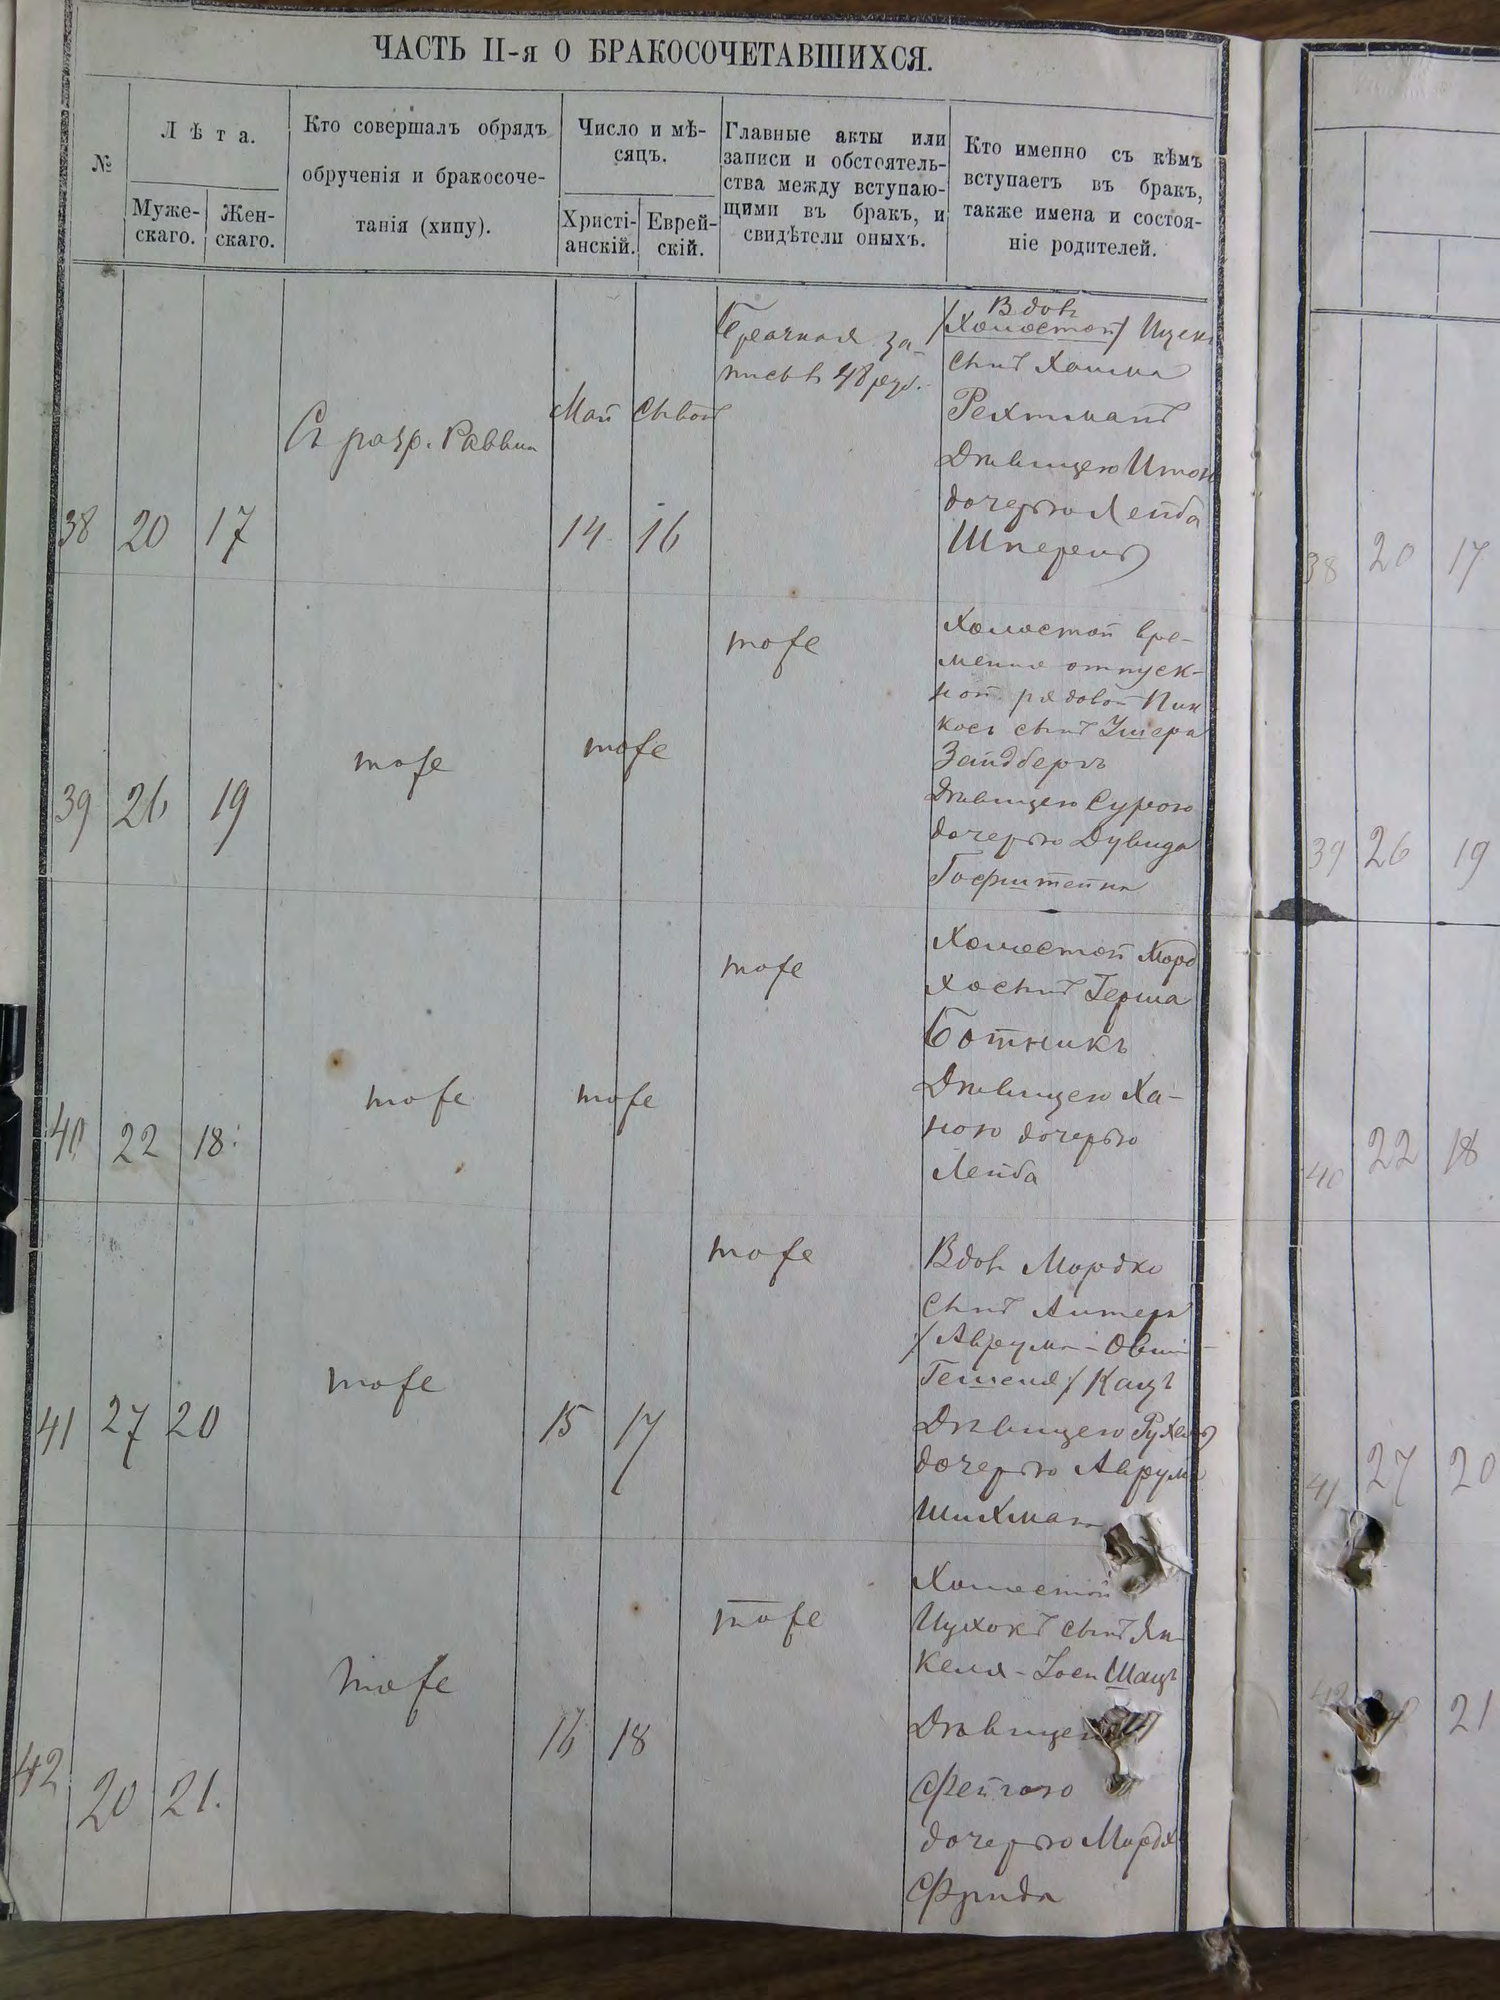 ЧАСТЬ II-я О БРАКОСОЧЕТАВШИХСЯ.
№
Лѣта.
Муже-
скаго.
Жен-
скаго.
Кто совершалъ обрядъ
обрученія и бракосоче-
танія (хипу).
Число и мѣ-
сяцъ.
Христі-
анскій.
Еврей-
скій.
Главные акты или
записи и обстоятель-
ства между вступаю-
щими въ бракъ, и
свидѣтели оныхъ.
Кто именно съ кѣмъ
вступаетъ въ бракъ,
также имена и состоя-
ніе родителей.
38
20
17
Съ разр. Раввин
Май
14
16
Брачная за-
пись в 48 руб.
Вдов
/Холостой/ Ицек
сынъ Хаима
Рехтманъ
Дѣвицею
дочерью Лейба
39
26
19
тоже
тоже
тоже
Холостой вре-
менно отпуск-
ной рядовой Пин
кос сынъ Ушера
Зайдберг
Дѣвицею Сурою
дочерью Дувида
Гофштейна
40
22
18
тоже
тоже
тоже
Холостой Морд
хо сынъ Герша
Ботникъ
Дѣвицею Ха-
ною дочерью
Лейба
41
27
20
тоже
15
17
тоже
Вдов Мордко
сынъ Алтера
/Аврума-Овший-
Гешеля/ Кацъ
Дѣвицею Рухель
дочерью Аврума
Шихман
42
20
21.
тоже
16
18
тоже
Холостой
Ицхокъ сынъ Ян
келя-Іоси Шацъ
Дѣвицею
Фейгою
дочерью Мордх
Фрида
38
20
17
39
26
19
40
22
18
41
27
20
42
21